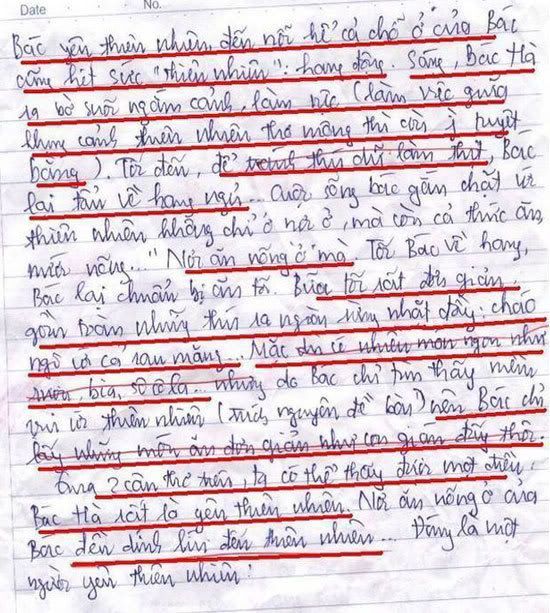 Date No.
Bác yên thiên nhiên đến nỗi hể cả chỗ ở của Bác
cũng hết sức "thiên nhiên": hang động. Sáng, Bác Hà
ra bờ suối ngắm cảnh, làm việc (làm việc giữa
khung cảnh thiên nhiên thơ mộng thì còn gì tuyệt
bằng). Tối đến, để tránh thú dữ làm thịt, Bác
lại tản về hang ngủ... Cuộc sống bác gắn chặt với
thiên nhiên không chỉ ở nơi ở, mà còn cả thức ăn,
nước nống..." Nơi ăn nống ở" mà Tối Bác về hang,
Bác lại chuẩn bị ăn tối. Bữa tối rất đơn giản
gồm toàn những thứ ra ngoài rừng nhặt đầy: cháo
ngô với cả rau măng... Mặc dù có nhiều món ngon như
rượu, bia, sô cô la... nhưng do Bác chỉ tìm thấy niềm
vui từ thiên nhiên (trích nguyên đề bài) nên Bác chỉ
lấy những món ăn đơn giản như con gián đấy thôi.
Qua 2 câu thơ trên, ta có thể thấy được một điều,
Bác Hà rất là yên thiên nhiên. Nơi ăn nống ở của
Bác đền dính líu đến thiên nhiên... Đúng là một
người yên thiên nhiên!